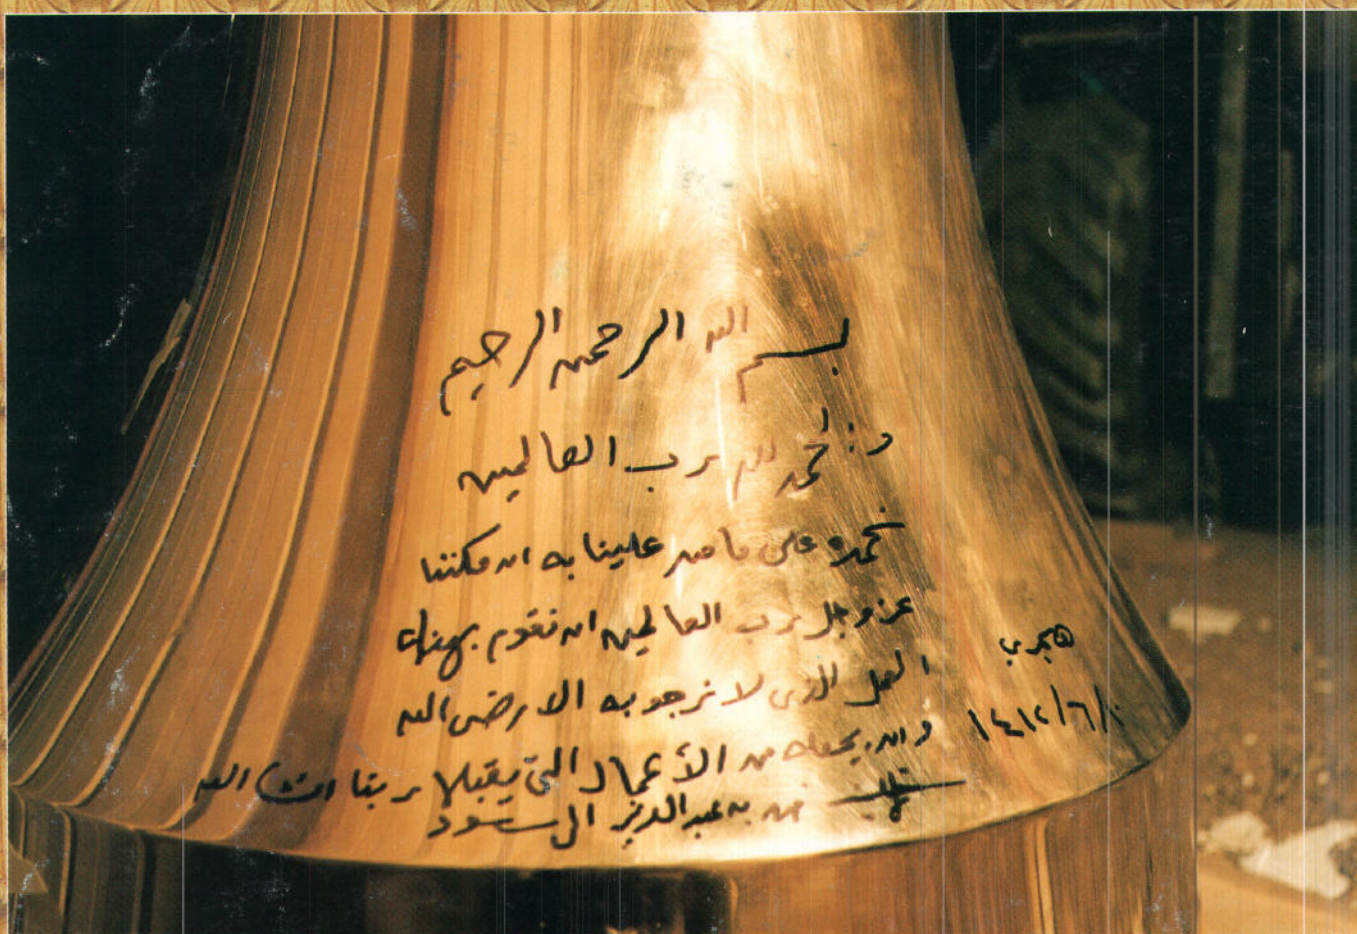 بسم الله الرحمن الرحيم
والحمد لله رب العالمين
نحمده على ما من علينا به ان مكننا
عز وجل رب العالمين ان نقوم بهذا
العمل الذي لا نرجو به الا رضى الله
وان يجعله من الأعمال التي يقبلها ربنا انشاء الله
بن عبد العزيز ال سعود
هجري